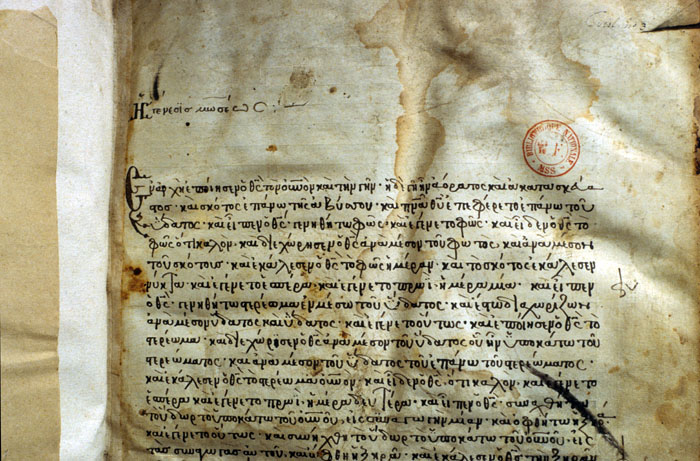 Ἡ γένεσις μωσέως
BIBLIOTHÈQUE NATIONALE MSS
R.F.
Ἐν ἀρχῆ ἐποίησεν ὁ θς τὸν οὐνον καὶ τὴν γῆν· ἡ δὲ γῆ ἦν ἀόρατος καὶ ἀκατασκεύα
στος· καὶ σκότος ἐπάνω τῆς ἀβύσσου· καὶ πνα θυ ἐπεφέρετο ἐπάνω τοῦ
ὕδατος· καὶ εἶπεν ὁ θς· γενηθήτω φῶς· καὶ ἐγένετο φῶς· καὶ εἶδεν ὁ θς τὸ
φῶς ὅτι καλόν· καὶ διεχώρησεν ὁ θς ἀναμέσον τοῦ φωτὸς· καὶ ἀναμέσον
τοῦ σκότους· καὶ ἐκάλεσεν ὁ θς τὸ φῶς ἡμέραν· καὶ τὸ σκότος ἐκάλεσεν
νύκτα· καὶ ἐγένετο ἑσπέρα· καὶ ἐγένετο πρωῒ· ἡμέρα μία· καὶ εἶπεν
ὁ θς· γενηθήτω στερέωμα ἐν μέσω τοῦ ὕδατος· καὶ ἔστω διαχωρίζων
ἀναμέσον ὕδατος καὶ ὕδατος· καὶ ἐγένετο οὕτως· καὶ ἐποίησεν ὁ θς τὸ
στερέωμα· καὶ διεχώρησεν ὁ θς ἀναμέσον τοῦ ὕδατος οὗ ἦν ὑποκάτω τοῦ
στερεώματος· καὶ ἀναμέσον τοῦ ὕδατος τοῦ ἐπάνω τοῦ στερεώματος·
καὶ ἐκάλεσεν ὁ θς τὸ στερέωμα οὐνον· καὶ εἶδεν ὁ θς ὅτι καλόν· καὶ ἐγένετο
ἑσπέρα καὶ ἐγένετο πρωῒ· ἡμέρα δευτέρα· καὶ εἶπεν ὁ θς· συναχθήτω
τὸ ὕδωρ τὸ ὑποκάτω τοῦ οὐνου· εἰς συναγωγὴν μίαν· καὶ ὀφθήτω ἡ ξηρά·
καὶ ἐγένετο οὕτως· καὶ συνήχθη τὸ ὕδωρ τὸ ὑποκάτω τοῦ οὐνου· εἰς
τὰς συναγωγὰς αὐτου· καὶ ὤφθη ἡ ξηρά· καὶ ἐκάλεσεν ὁ θς τὴν ξηρὰν